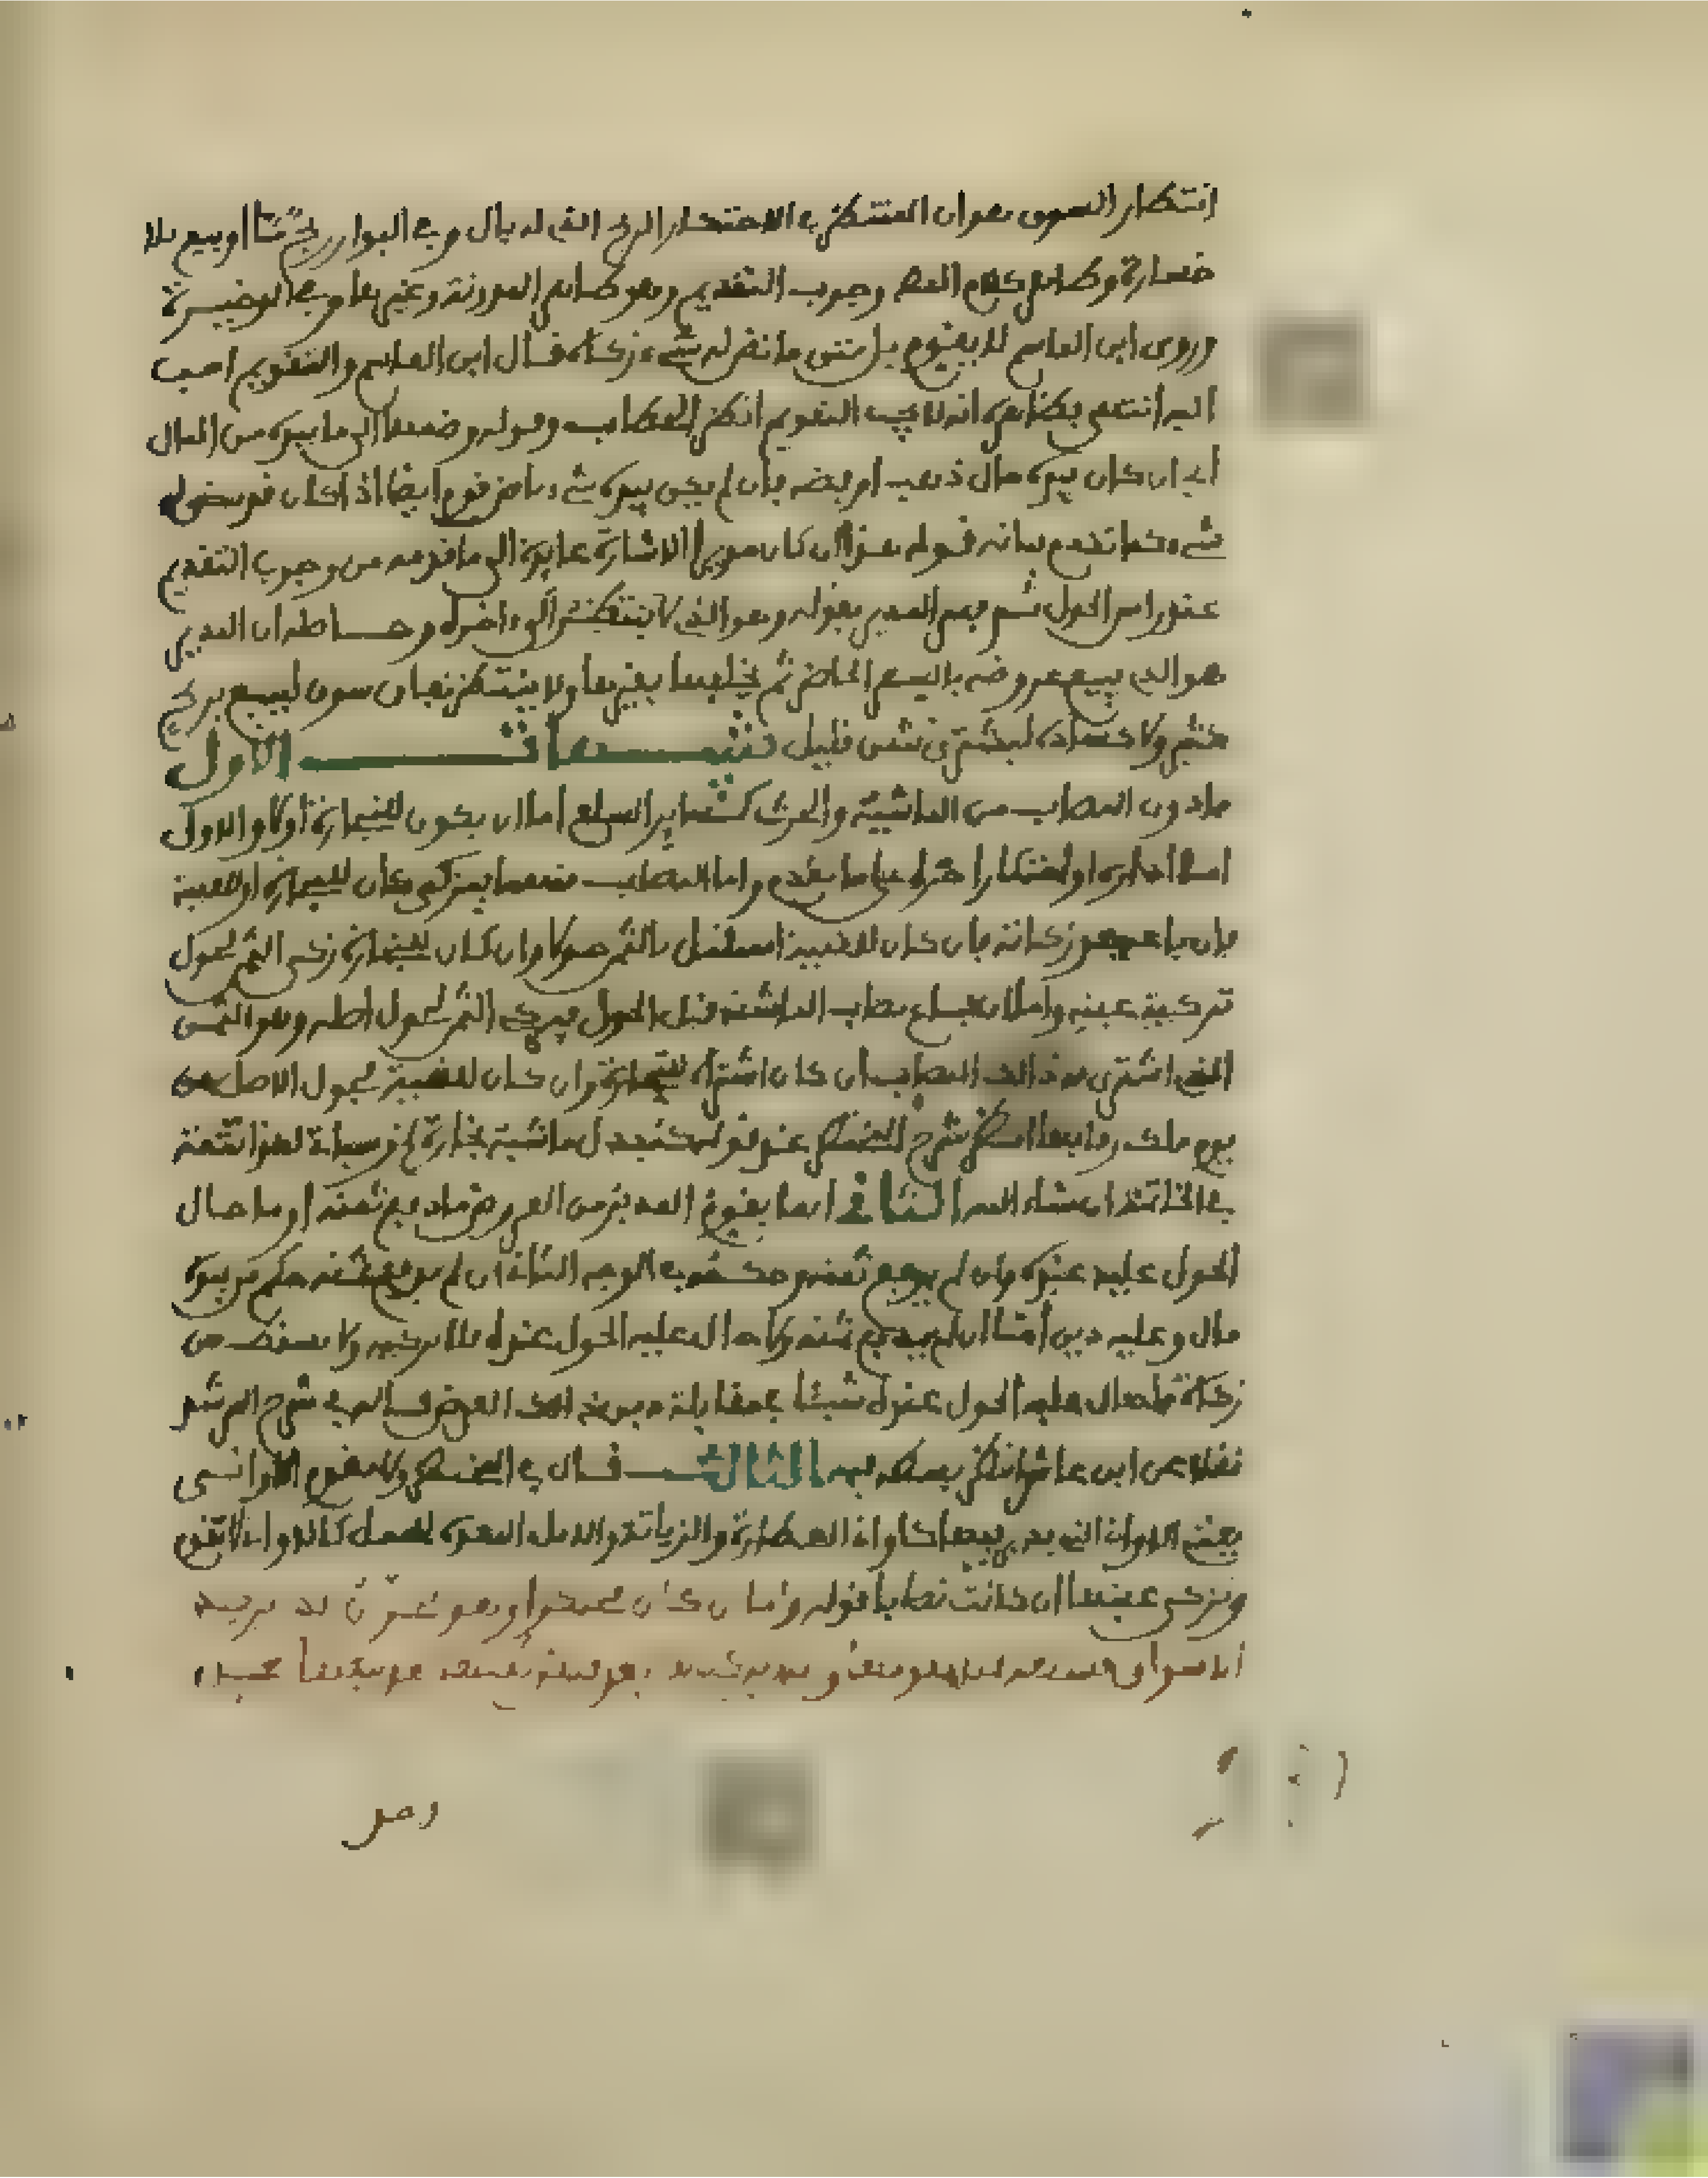 انتظار السوق هو ان المنتظر في الاحتكار الربح الذي له بال وفي البوار ربح ما او يبيع بلا
خسارة وظاهر كلام وجوب التقويم وهو ظاهر المدونة وغيرها وفي الذخيرة
وروى ابن القاسم لا يقوم بل متى ما نض له شيء زكاه قال ابن القاسم والتقويم احب
الي انتهى بظاهره انه لا يجب التقويم انظر الحطاب وقوله وضمها الى ما بيده من المال
اي ان كان بيده مال ذهب او فضة فان لم يكن بيده شيء ناض قوم ايضا اذا كان قد نض له
شيء كما تقدم بيانه قوله هذا ان كان مديرا الاشارة عايدة الى ما قدمه من وجوب التقويم
عند راس الحول ثم فسر المدير بقوله وهو الذي لا ينتظر الى اخره وحاصله ان المدير
هو الذي يبيع عروضه بالسعر الحاضر ثم يخلفها بغيرها ولا ينتظر نفاق سوق ليبيع بربح
كثير ولا كساده ليشتري بثمن قليل تنبيهات الاول
ما دون النصاب من الماشية والحرث كساير السلع اما ان يكون للتجارة اولا والاول
اما ادارة او احتكارا على ما تقدم واما النصاب منهما يزكى كان للتجارة او للقنية
فان باعه بعد زكاته فان كان للقنية استقبل بالثمن حولا وان كان للتجارة زكى الثمن لحول
تزكية عينه واما ان باع نصاب الماشية قبل الحول فيزكي الثمن لحول اصله وهو الثمن
الذي اشترى به ذالك النصاب ان كان اشتراه للتجارة وان كان للقنية فحول الاصل من
يوم ملك رقابها انظر شرح المختصر عند قوله كمبدل ماشية تجارة الخ وسياتي لهذا تتمة
في الخاتمة ان شاء الله الثاني انما يقوم المدير من العروض ما دفع ثمنه او ما حال
الحول عليه عنده وان لم يدفع ثمنه وحكمه في الوجه الثاني ان لم يدفع ثمنه حكم من بيده
مال وعليه دين اما ان لم يدفع ثمنه ولا حال عليه الحول عنده فلا يزكيه ولا يسقط من
زكاة ما حال عليه الحول عنده شيئا بمقابلة دين ذلك العرض قاله في شرح المرشد
نقلا عن ابن عاشر انظر بسطه فيه الثالث قال في المختصر ولا تقوم الاواني
يعني الاواني التي يدير فيها كاواني العطارة والزياتة والابل المعدة للحمل كالاواني لا تقوم
وتزكى عينها ان كانت نصابا قوله واما ان كان محتكرا وهو